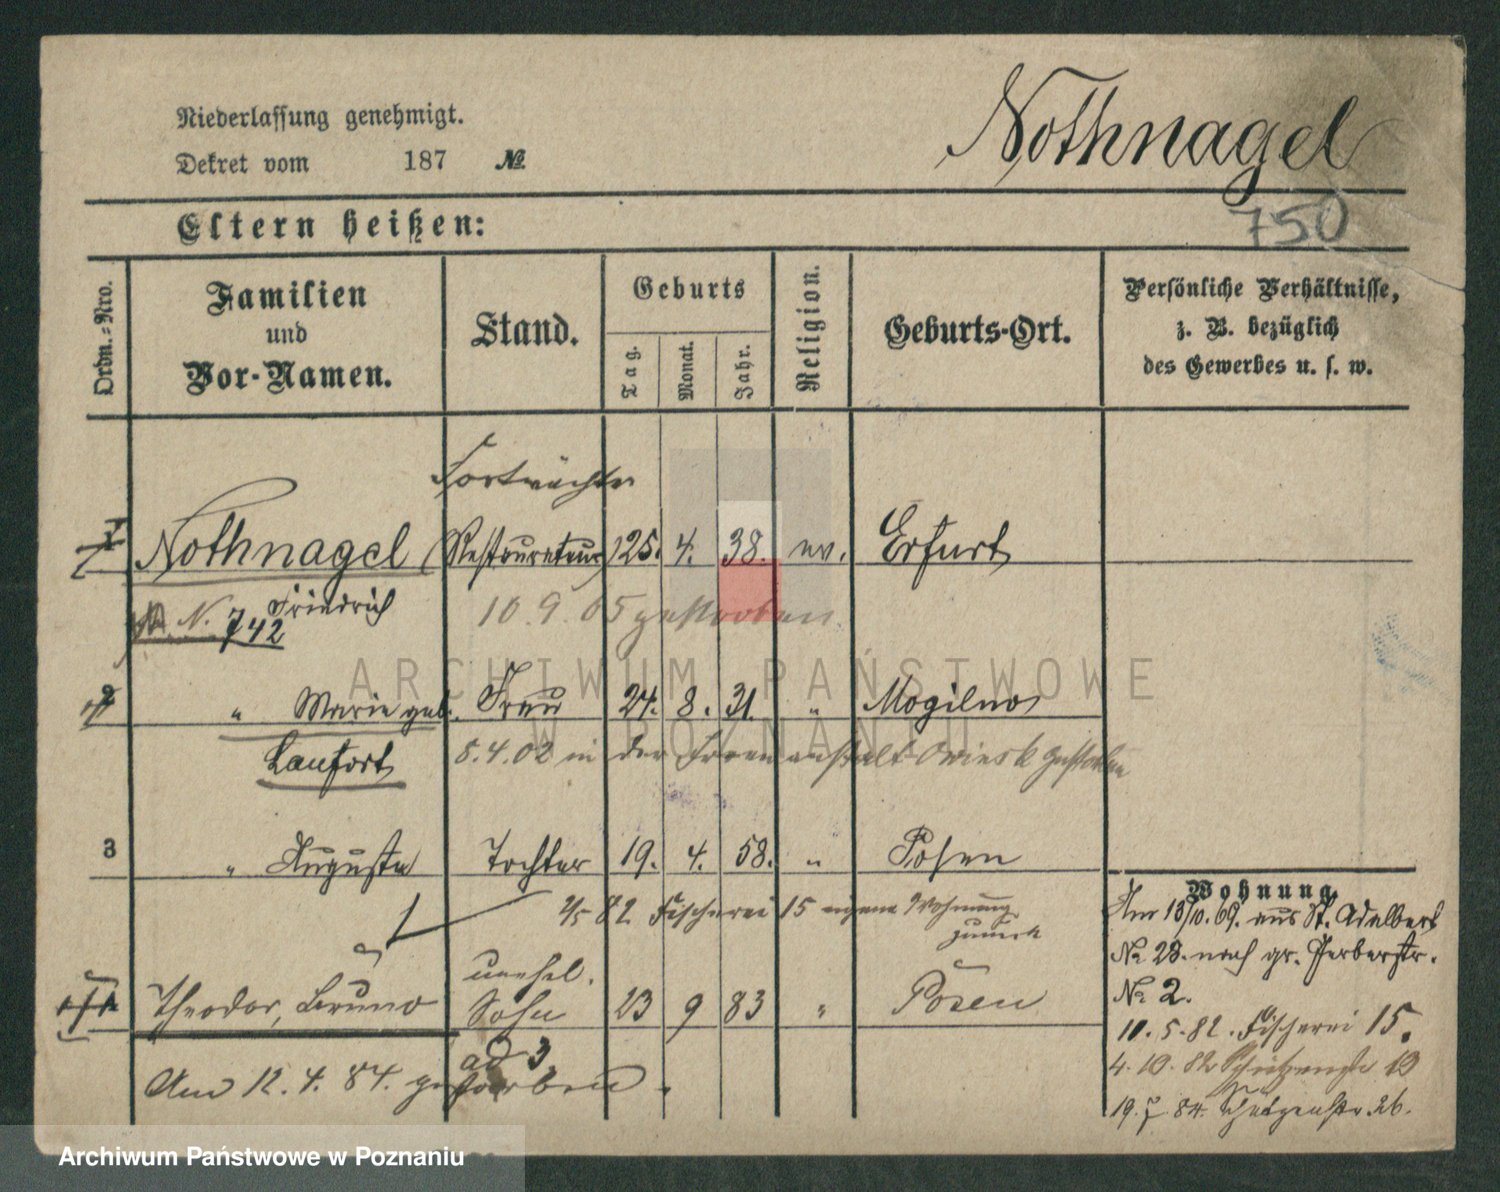 Niederlassung genehmigt.
Dekret vom 187 №
Nothnagel
750
Eltern heißen:
Ordn.-Nro.
Familien und Vor-Namen.
Stand.
Geburts
Tag.
Monat.
Jahr.
Religion.
Geburts-Ort.
Persönliche Verhältnisse,
z. B. bezüglich
des Gewerbes u. s. w.
Fortwächter
1 Nothnagel (Restaurateur) 25. 4. 38. ev. Erfurt
Friedrich 10.9.05 gestorben
N. 742
ARCHIWUM PAŃSTWOWE
2 " Marie geb. Frau 24. 8. 31. " Mogilno
W POZNANIU
Laufort 8.4.02 in der Irrenanstalt Owinsk gestorben
3 " Auguste Tochter 19. 4. 58. " Posen
82 Fischerei 15 eigene Wohnung
zurück
unehel.
Theodor, Bruno Sohn 23 9 83 " Posen
ad 3
Am 12.4.84. gestorben.
Wohnung
Am 13/10.69. aus St. Adalbert
No 28. nach gr. Gerberstr.
No 2.
10.5.82. Fischerei 15.
4.10.82 Schützenstr 19
19.7.84. Schützenstr. 26.
Archiwum Państwowe w Poznaniu